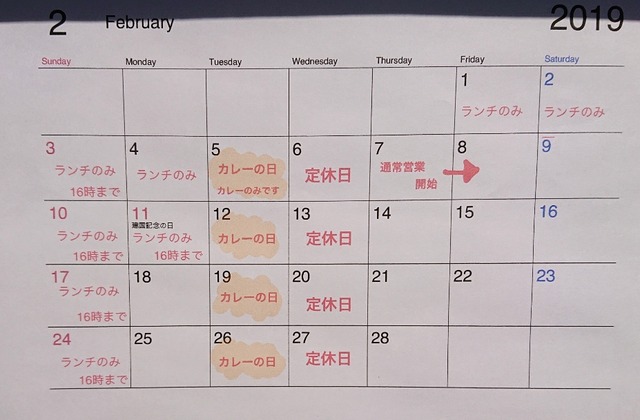 2 February 2019
Sunday Monday Tuesday Wednesday Thursday Friday Saturday
1 2
ランチのみ ランチのみ
3 4 5 6 7 8 9
ランチのみ ランチのみ カレーの日 定休日 通常営業
16時まで カレーのみです 開始
10 11 12 13 14 15 16
建国記念の日
ランチのみ ランチのみ カレーの日 定休日
16時まで 16時まで
17 18 19 20 21 22 23
ランチのみ カレーの日 定休日
16時まで
24 25 26 27 28
ランチのみ カレーの日 定休日
16時まで